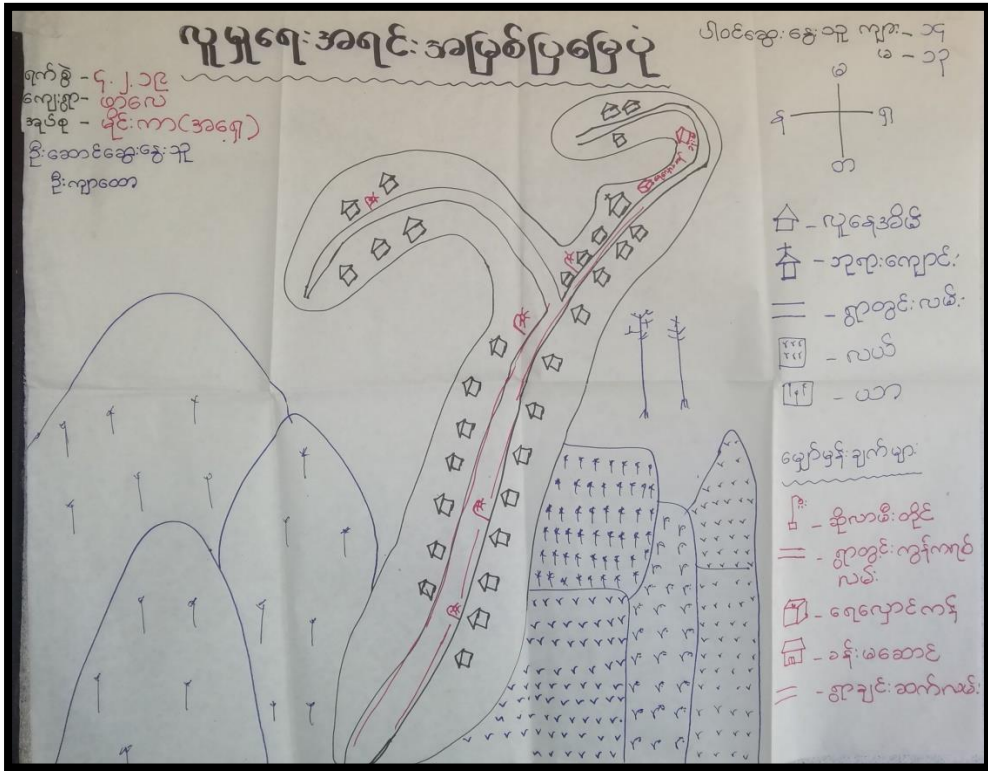 လူမှုရေးအရင်းအမြစ်ပြမြေပုံ
ရက်စွဲ - ၄.၂.၁၉
ကျေးရွာ - ဖာလေ
အုပ်စု - မိုင်းကာ(အရှေ့)
ဦးဆောင်ဆွေးနွေးသူ
ဦးကျာထော
ပါဝင်ဆွေးနွေးသူ ကျား - ၁၄
မ - ၁၃
မ
န
ရှ
တ
- လူနေအိမ်
- ဘုရားကျောင်း
- ရွာတွင်းလမ်း
- လယ်
- ယာ
မျှော်မှန်းချက်များ
- ဆိုလာမီးတိုင်
- ရွာတွင်းကွန်ကရစ်
လမ်း
- ရေလှောင်ကန်
- ခန်းမဆောင်
- ရွာချင်းဆက်လမ်း